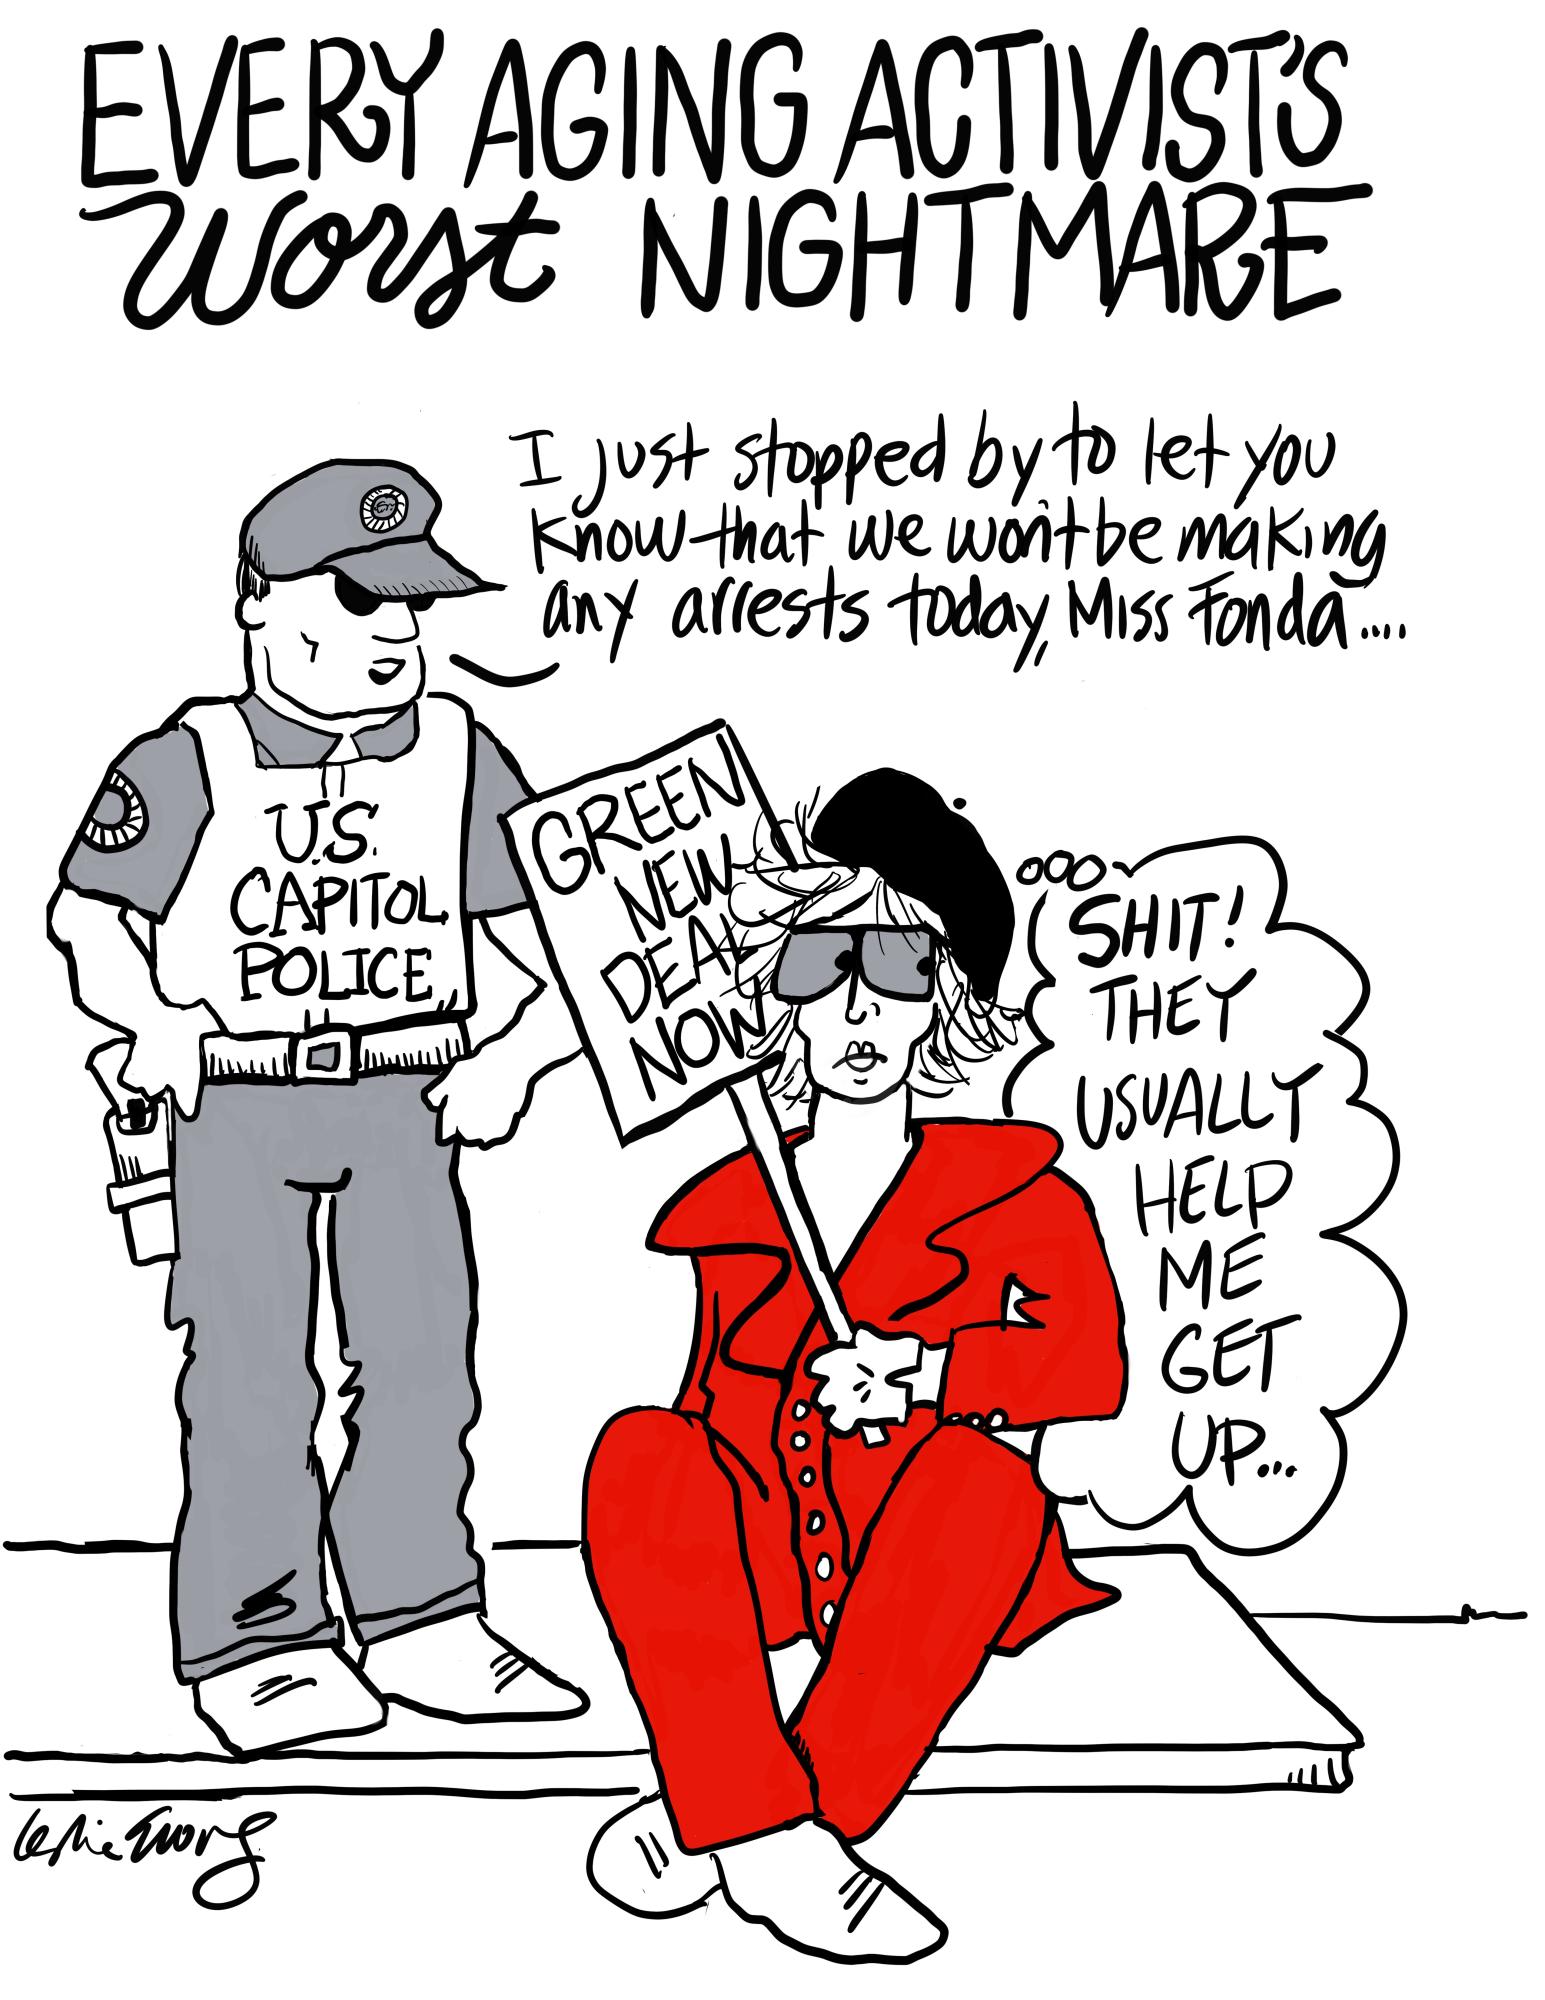 EVERY AGING ACTIVIST'S
Worst NIGHTMARE
I just stopped by to let you
know that we won't be making
any arrests today, Miss Fonda....
U.S.
CAPITOL
POLICE
GREEN
NEW
DEAL
NOW
SHIT!
THEY
USUALLY
HELP
ME
GET
UP...
Leslie Ewing